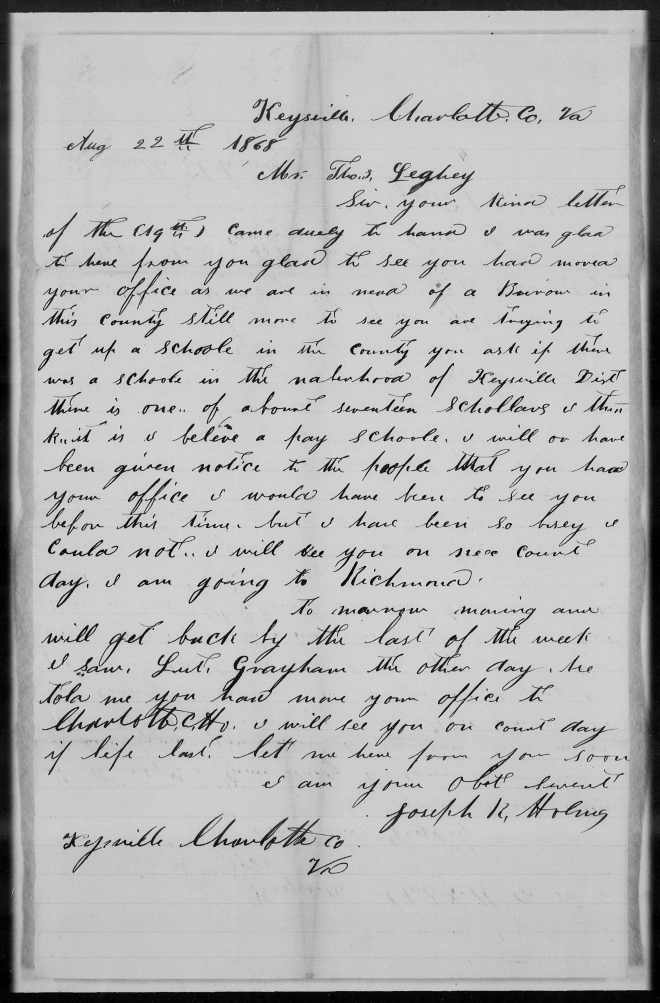 Keysville. Charlotte. Co, Va
Aug 22th 1868
Mr. Thos, Leghey
Sir, your kind letter
of the (19th) came duely to hand I was glad
to here from you glad to see you had moved
your office as we are in nead of a Burow in
this county still more to see you are trying to
get up a schoole in the county you ask if there
was a schoole in the naberhood of Keysville Dist
there is one.. of abount seventeen Schollars I thin
k.. it is I beleve a pay schoole. I will or have
been given notice to the people that you had
your office I would have been to see you
befor this time. but I have been so bsey I
could not.. I will see you on nex count
day. I am going to Richmond.
to morrow morning and
will get back by the last of the week
I saw. Lut. Grayham the other day. he
told me you had move your office to
Charlotte. C. Ho. I will see you on count day
if life last. let me here from you soon
I am your obet servent
Joseph R, Holmes
Keysville Charlotte co.
Va